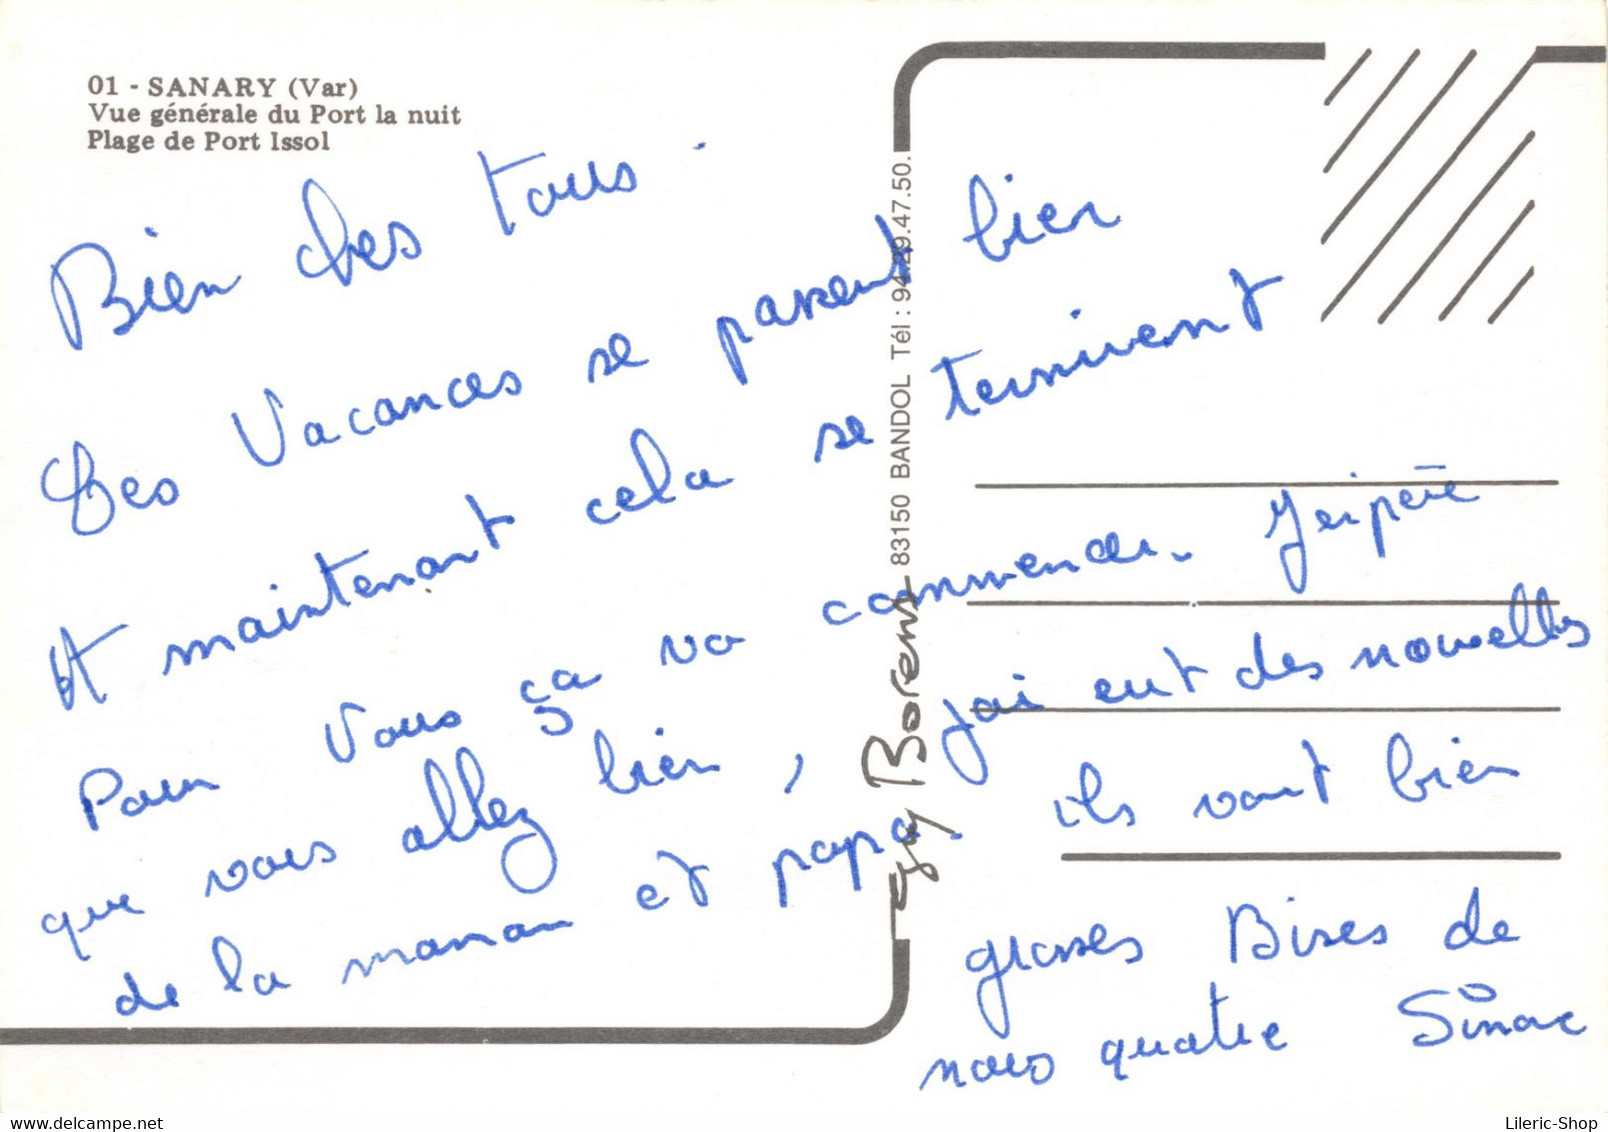 01 - SANARY (Var)
Vue générale du Port la nuit
Plage de Port Issol
Bien chès tous -
Les Vacances se passent bien
et maintenant cela se termivent
Pour Vous ça va commencer. J'espère
que vous allez bien, j'ai eut des nouvelles
de la maman et papa. ils vont bien
grosses Bises de
nous quatre
83150 BANDOL Tél : 94.29.47.50.
Borens
Lileric-Shop